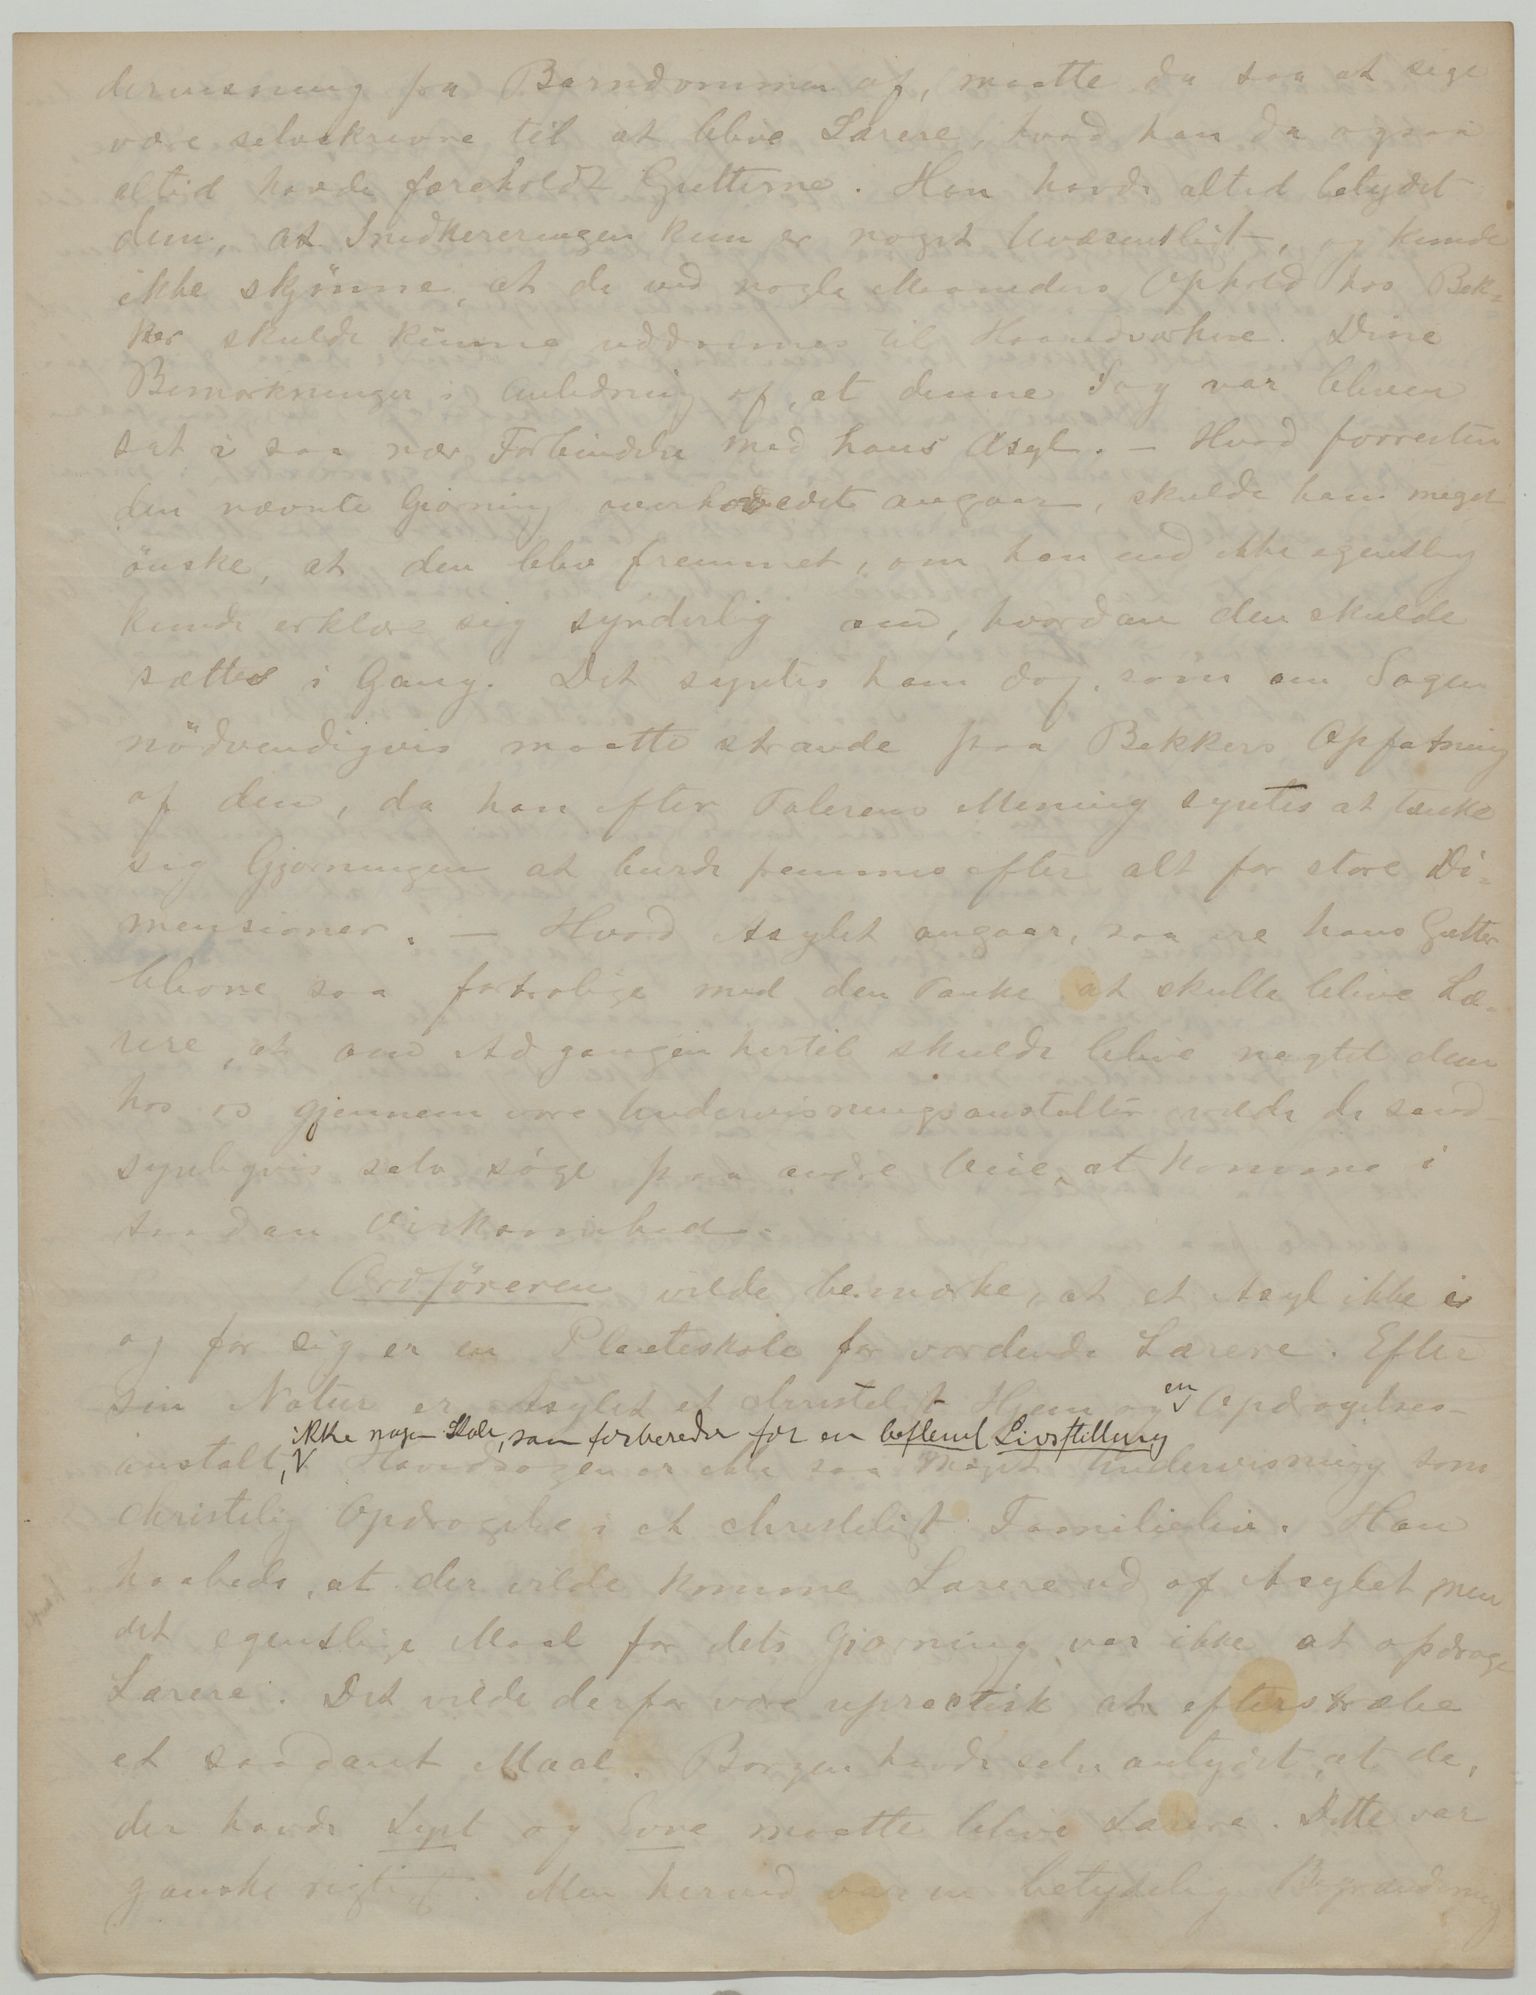 dervisning fra Barndommen af, maatte da saa at sige
være selvskrevne til at blive Lærere, hvad han da ogsaa
altid havde foreholdt Gutterne. Han havde altid betydet
dem, at Snedkereringen kun er noget Uvæsentligt, og kunde
ikke skjønne, at de ved nogle Maaneders Ophold hos Bek-
ker skulde kunne uddannes til Haandværkere. Disse
Bemærkninger i Anledning af, at denne Sag var bleven
sat i saa nær Forbindelse med hans Asyl. – Hvad forresten
den nævnte Gjerning overhovedet angaar, skulde han meget
önske, at den blev fremmet, om han end ikke egentlig
kunde erklære sig synderlig om, hvordan den skulde
sættes i Gang. Det syntes ham dog, som om Sagen
nödvendigvis maatte strande paa Bekkers Opfatning
af den, da han efter Talerens Mening syntes at tænke
sig Gjerningen at burde fremmes efter alt for store Di-
mensioner. – Hvad Asylet angaar, saa ere hans Gutter
blevne saa fortrolige med den Tanke at skulle blive Læ-
rere, at om Adgangen hertil skulde blive nægtet dem
hos os gjennem vore Undervisningsanstalter vilde de sand-
synligvis selv söge paa andre Veie at komme i
saadan Virksomhed.
Ordföreren vilde bemærke, at et Asyl ikke i
og for sig er en Planteskole for vordende Lærere. Efter
sin Natur er Asylet et christeligt Hjem og en Opdragelses-
anstalt, ikke nogen Skole, som forbereder for en bestemt Livsstilling
Hovedsagen er ikke saa meget Undervisning som
christelig Opdragelse i et christeligt Familieliv. Han
haabede, at der vilde komme Lærere ud af Asylet, men
det egentlige Maal for dets Gjerning var ikke at opdrage
Lærere. Det vilde derfor være upractisk at efterstræbe
et saadant Maal. Borgen havde selv antydet, at de,
der havde Lyst og Evne maatte blive Lærere. Dette var
ganske rigtigt. Men herved var en betydelig Begrændsning